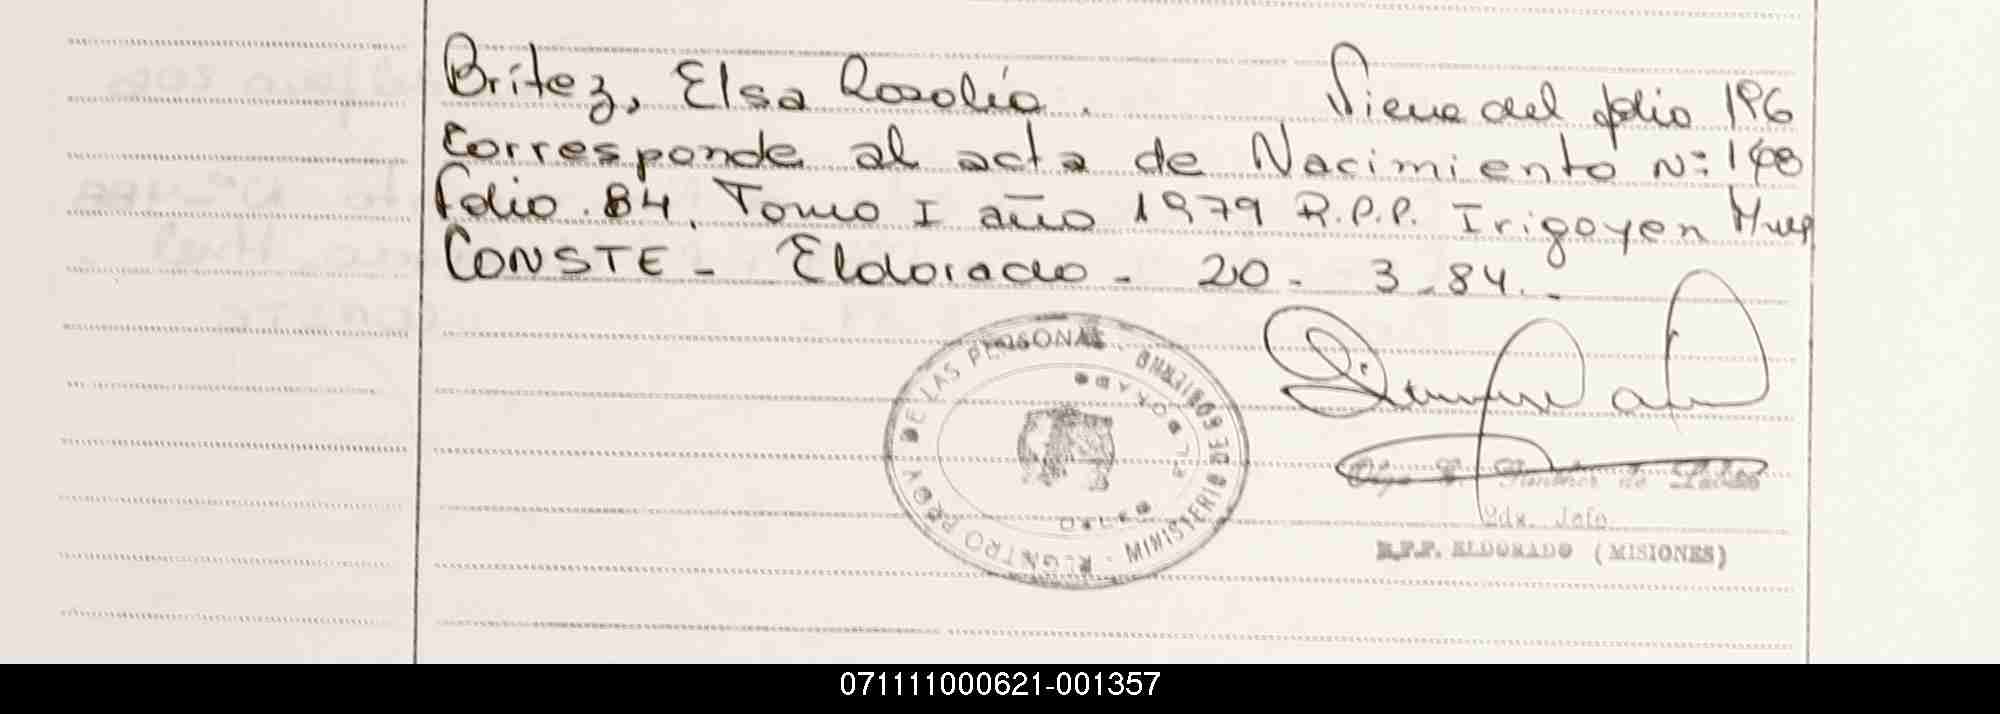 Britez, Elsa Rosolía. Viene del folio 196
Corresponde al acta de Nacimiento N: 148
folio. 84. Tomo I año 1979 R.P.P. Irigoyen
CONSTE - Eldorado - 20 - 3 - 84. -
REGISTRO PROV. DE LAS PERSONAS - MINISTERIO DE GOBIERNO
R.P.P. ELDORADO (MISIONES)
071111000621-001357